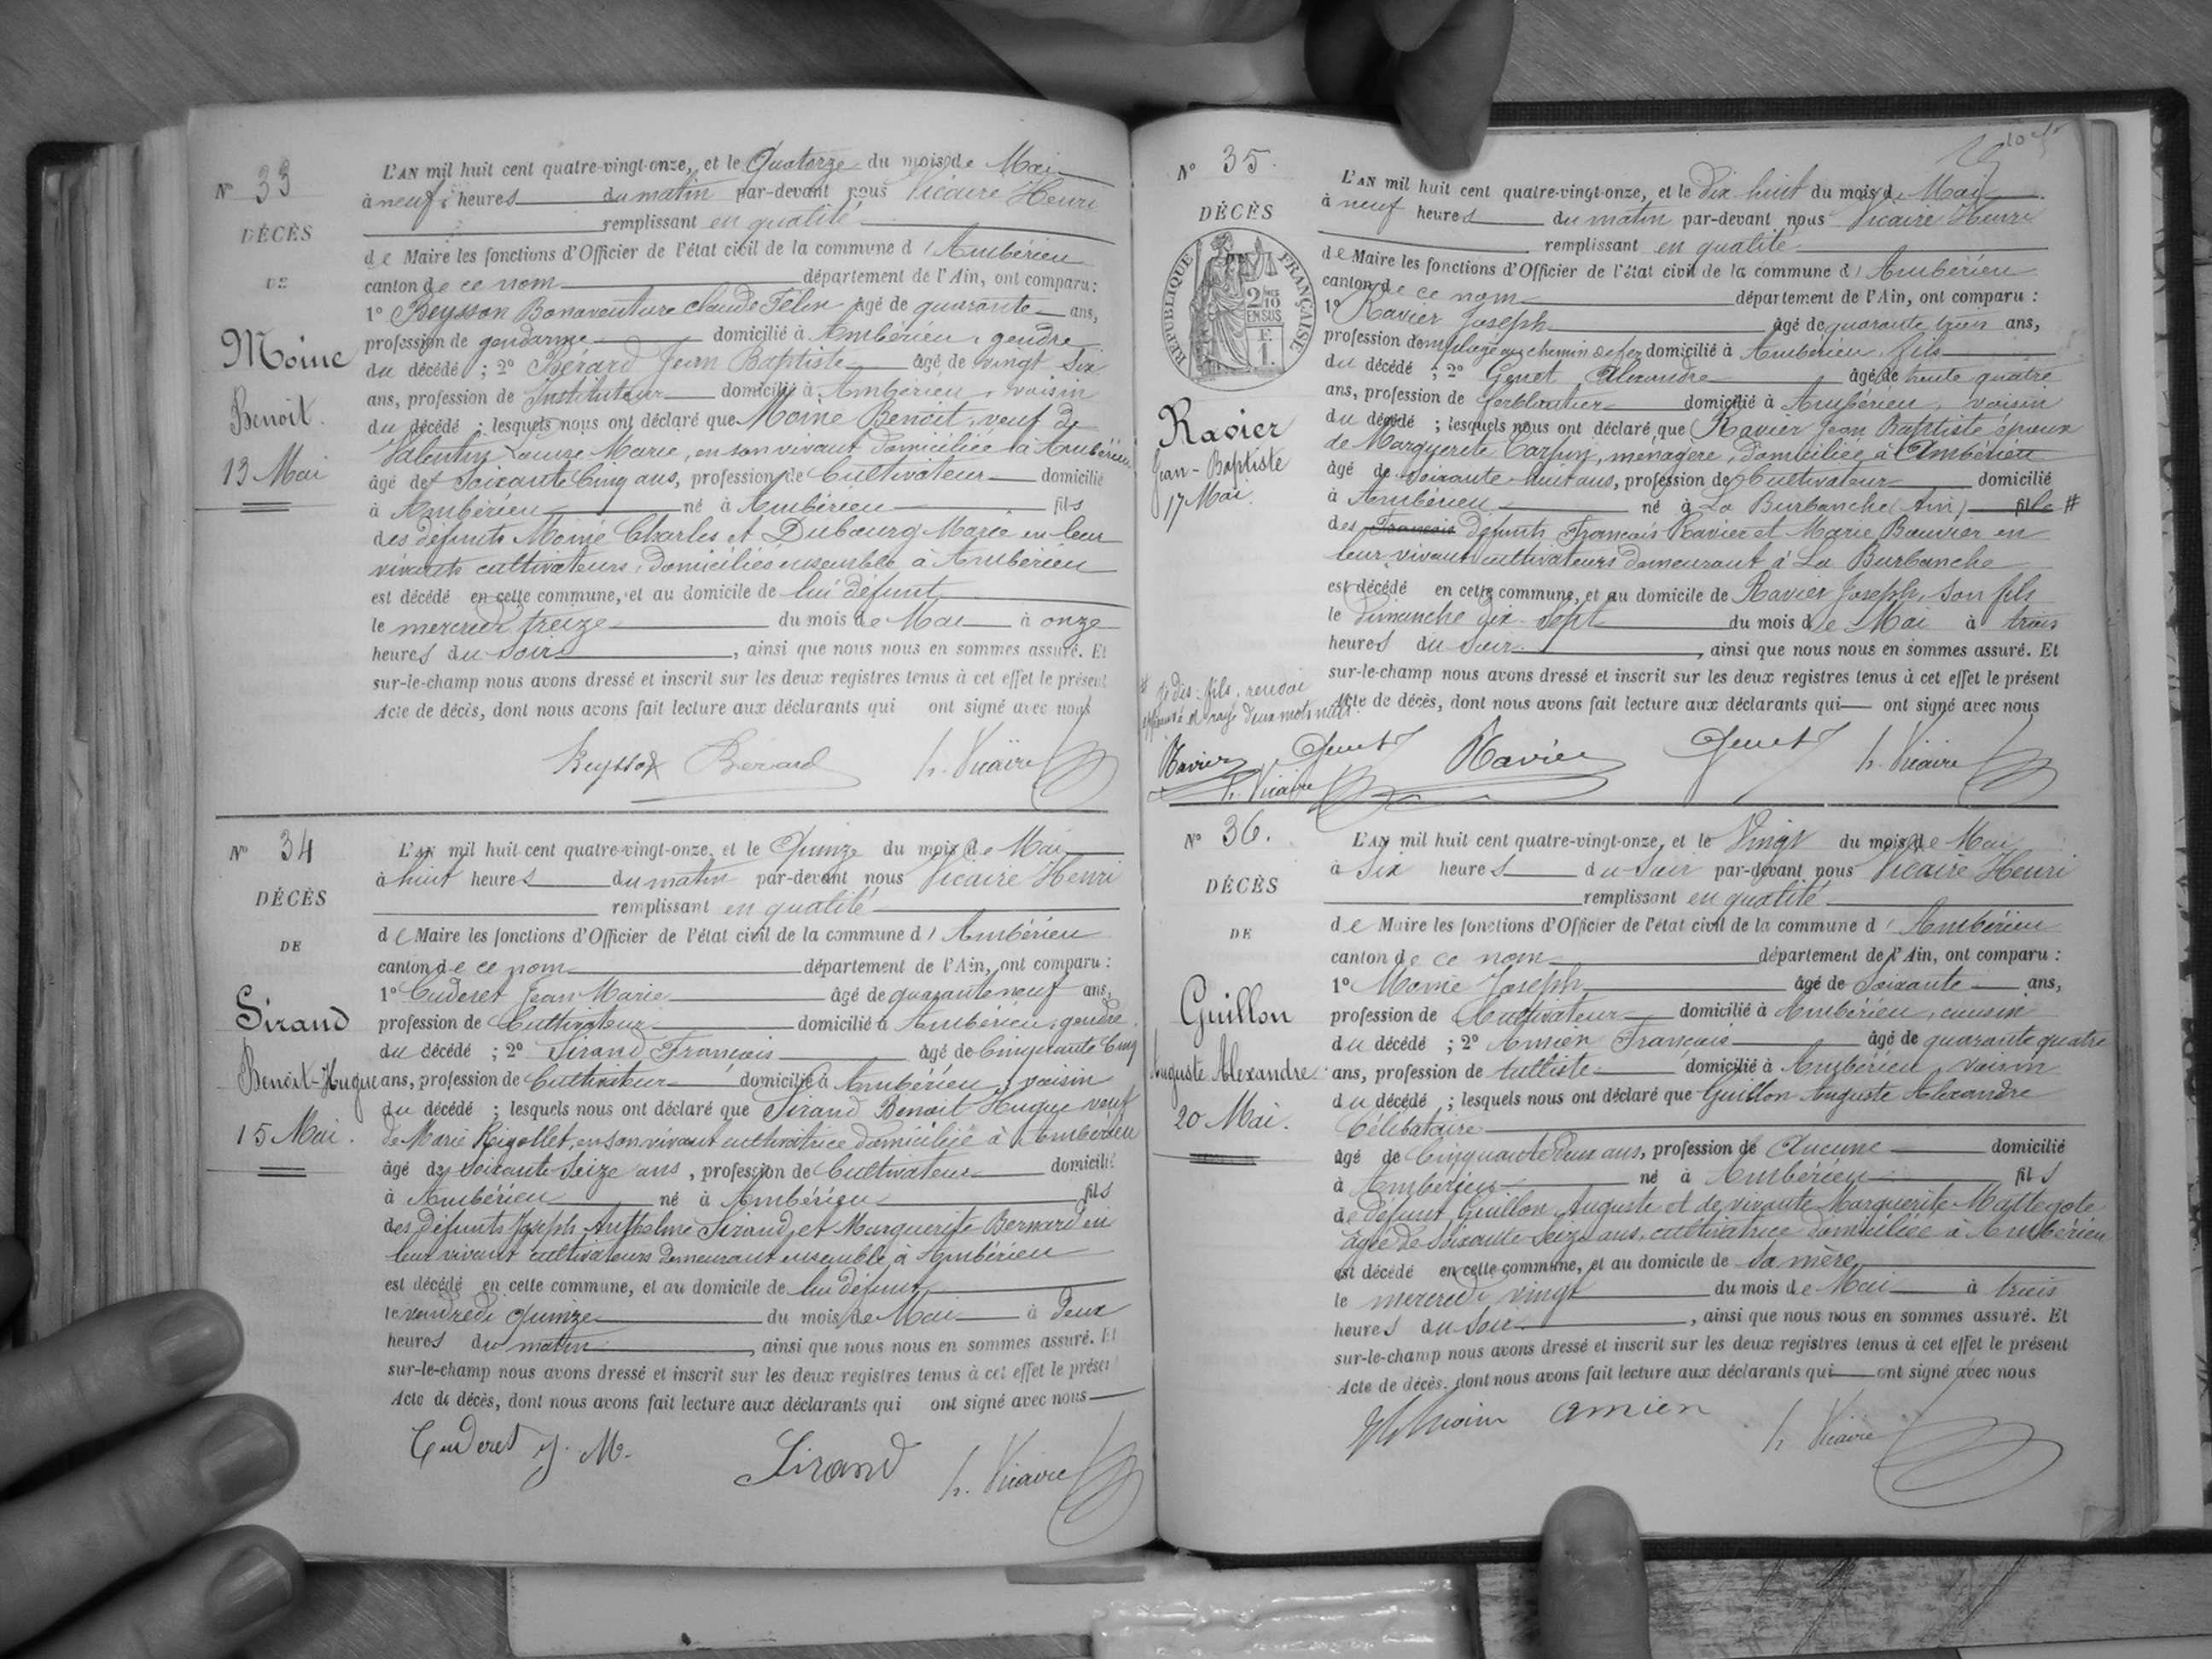 N° 33
DÉCÈS
DE
Moine
Benoit.
13 Mai
L'AN mil huit cent quatre-vingt-onze, et le Quatorze du mois de Mai
à neuf heures du matin par-devant nous Vicaire Henri
remplissant en qualité
de Maire les fonctions d'Officier de l'état civil de la commune d'Ambérieu
canton de ce nom département de l'Ain, ont comparu :
1° Reysson Bonaventure Claude Félix âgé de quarante ans,
profession de gendarme domicilié à Ambérieu, gendre
du décédé ; 2° Bérard Jean Baptiste âgé de vingt six
ans, profession de Instituteur domicilié à Ambérieu, voisin
du décédé ; lesquels nous ont déclaré que Moine Benoit, veuf de
Valentin Louise Marie, en son vivant domiciliée à Ambérieu
âgé de soixante Cinq ans, profession de Cultivateur domicilié
à Ambérieu né à Ambérieu fils
des défunts Moine Charles et Dubourg Marie en leur
vivants cultivateurs, domiciliés ensemble à Ambérieu
est décédé en cette commune, et au domicile de lui défunt
le mercredi treize du mois de Mai à onze
heures du soir , ainsi que nous nous en sommes assuré. Et
sur-le-champ nous avons dressé et inscrit sur les deux registres tenus à cet effet le présent
Acte de décès, dont nous avons fait lecture aux déclarants qui ont signé avec nous
Reysson Bérard h. Vicaire
N° 34
DÉCÈS
DE
Sirand
Benoit-Hugue
15 Mai.
L'AN mil huit cent quatre-vingt-onze, et le Quinze du mois de Mai
à huit heures du matin par-devant nous Vicaire Henri
remplissant en qualité
de Maire les fonctions d'Officier de l'état civil de la commune d'Ambérieu
canton de ce nom département de l'Ain, ont comparu :
1° Cuderet Jean Marie âgé de quarante neuf ans,
profession de Cultivateur domicilié à Ambérieu, gendre
du décédé ; 2° Sirand François âgé de Cinquante Cinq
ans, profession de Cultivateur domicilié à Ambérieu, voisin
du décédé ; lesquels nous ont déclaré que Sirand Benoit Hugue veuf
de Marie Rigollet, en son vivant cultivatrice domiciliée à Ambérieu
âgé de soixante Seize ans, profession de Cultivateur domicilié
à Ambérieu né à Ambérieu fils
des défunts Joseph Anthelme Sirand, et Marguerite Bernard en
leur vivant cultivateurs demeurant ensemble à Ambérieu
est décédé en cette commune, et au domicile de lui défunt
le vendredi quinze du mois de Mai à deux
heures du matin , ainsi que nous nous en sommes assuré. Et
sur-le-champ nous avons dressé et inscrit sur les deux registres tenus à cet effet le présent
Acte de décès, dont nous avons fait lecture aux déclarants qui ont signé avec nous
Cuderet J. M. Sirand h. Vicaire
N° 35.
DÉCÈS
RÉPUBLIQUE FRANÇAISE
2/10 EN SUS
F. 1.
Ravier
Jean-Baptiste
17 Mai.
L'AN mil huit cent quatre-vingt-onze, et le dix huit du mois de Mai
à neuf heures du matin par-devant nous Vicaire Henri
remplissant en qualité
de Maire les fonctions d'Officier de l'état civil de la commune d'Ambérieu
canton de ce nom département de l'Ain, ont comparu :
1° Ravier Joseph âgé de quarante trois ans,
profession d'employé au chemin de fer domicilié à Ambérieu, fils
du décédé ; 2° Genet Alexandre âgé de trente quatre
ans, profession de ferblantier domicilié à Ambérieu, voisin
du décédé ; lesquels nous ont déclaré que Ravier Jean Baptiste époux
de Marguerite Carpin, ménagère, domiciliée à Ambérieu
âgé de soixante huit ans, profession de Cultivateur domicilié
à Ambérieu né à La Burbanche (Ain) fille #
des François défunts François Ravier et Marie Bouvier en
leur vivant cultivateurs demeurant à La Burbanche
est décédé en cette commune, et au domicile de Ravier Joseph, son fils
le dimanche dix Sept du mois de Mai à trois
heures du soir , ainsi que nous nous en sommes assuré. Et
sur-le-champ nous avons dressé et inscrit sur les deux registres tenus à cet effet le présent
Acte de décès, dont nous avons fait lecture aux déclarants qui ont signé avec nous
# Je dis : fils, renvoi
approuvé et rayé deux mots nuls.
Ravier Genet Ravier Genet h. Vicaire
h. Vicaire
N° 36.
DÉCÈS
DE
Guillon
Auguste Alexandre
20 Mai.
L'AN mil huit cent quatre-vingt-onze, et le Vingt du mois de Mai
à Six heures du Soir par-devant nous Vicaire Henri
remplissant en qualité
de Maire les fonctions d'Officier de l'état civil de la commune d'Ambérieu
canton de ce nom département de l'Ain, ont comparu :
1° Moine Joseph âgé de Soixante ans,
profession de Cultivateur domicilié à Ambérieu, cousin
du décédé ; 2° Amien François âgé de quarante quatre
ans, profession de tulliste domicilié à Ambérieu, voisin
du décédé ; lesquels nous ont déclaré que Guillon Auguste Alexandre
Célibataire
âgé de Cinquante Deux ans, profession de Aucune domicilié
à Ambérieu né à Ambérieu fils
de défunt Guillon Auguste et de vivante Marguerite Mattegote
âgée de Soixante Seize ans, cultivatrice domiciliée à Ambérieu
est décédé en cette commune, et au domicile de sa mère
le mercredi vingt du mois de Mai à trois
heures du soir , ainsi que nous nous en sommes assuré. Et
sur-le-champ nous avons dressé et inscrit sur les deux registres tenus à cet effet le présent
Acte de décès, dont nous avons fait lecture aux déclarants qui ont signé avec nous
Moine amien h. Vicaire